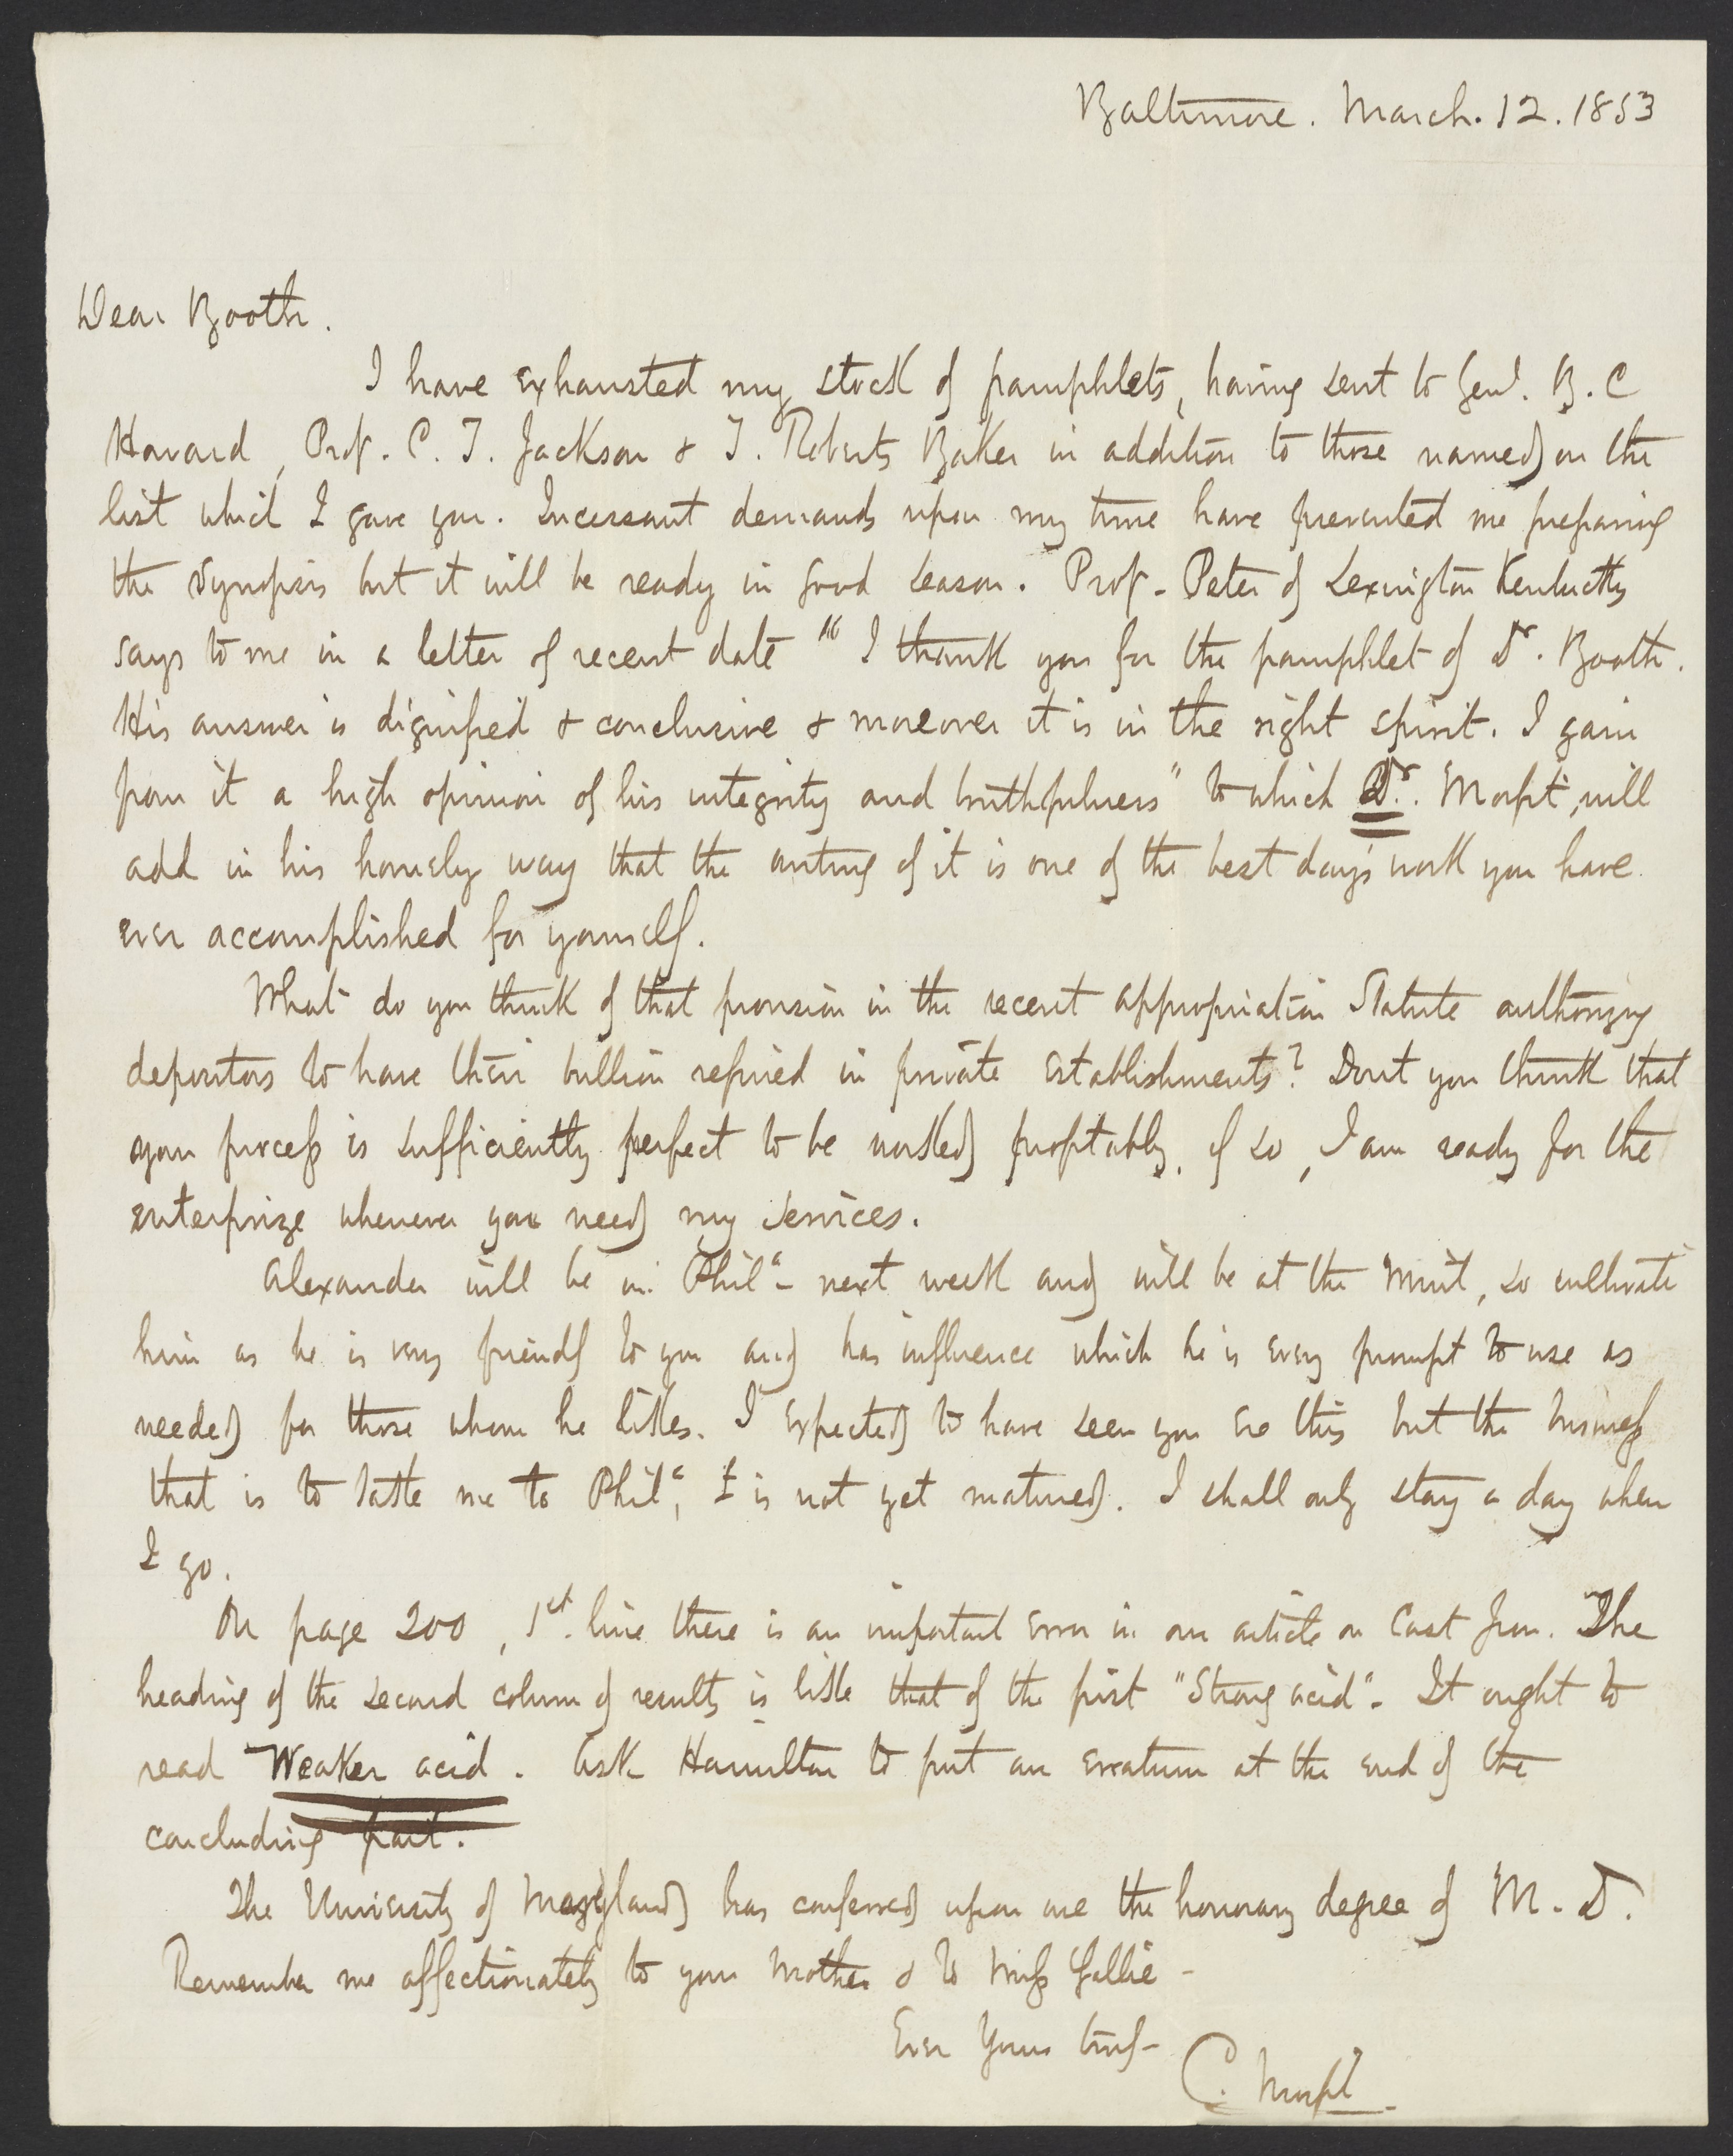 Baltimore. March. 12. 1853
Dear Booth.
I have exhausted my stock of pamphlets, having sent to Genl. B. C
Howard, Prof. C. T. Jackson & T. Roberts Baker in addition to those named on the
list which I gave you. Incessant demands upon my time have prevented me preparing
the Synopsis but it will be ready in good season. Prof. Peter of Lexington Kentucky
says to me in a letter of recent date "I thank you for the pamphlet of Dr. Booth.
His answer is dignified & conclusive & moreover it is in the right spirit. I gain
from it a high opinion of his integrity and truthfulness" to which Dr. Morfit, will
add in his homely way that the writing of it is one of the best day's work you have
ever accomplished for yourself.
What do you think of that provision in the recent appropriation Statute authorizing
depositors to have their bullion refined in private establishments? Dont you think that
your process is sufficiently perfect to be worked profitably, if so, I am ready for the
enterprize whenever you need my services.
Alexander will be in Phila- next week and will be at the Mint, so cultivate
him as he is very friendly to you and has influence which he is every prompt to use as
needed for those whom he likes. I expected to have seen you ere this but the business
that is to take me to Phila, is not yet matured. I shall only stay a day when
I go.
On page 200, 1st. line there is an important error in our article on Cast Iron. The
heading of the second column of results is like that of the first "Strong acid". It ought to
read Weaker acid. Ask Hamilton to put an erratum at the end of the
concluding part.
The University of Maryland has conferred upon me the honorary degree of M. D.
Remember me affectionately to your Mother & to Miss Gallie -
Ever Yours truly-
C. Morfit